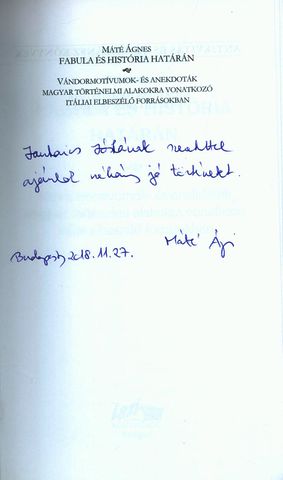 MÁTÉ ÁGNES
FABULA ÉS HISTÓRIA HATÁRÁN
VÁNDORMOTÍVUMOK- ÉS ANEKDOTÁK
MAGYAR TÖRTÉNELMI ALAKOKRA VONATKOZÓ
ITÁLIAI ELBESZÉLŐ FORRÁSOKBAN
Jankovics Józsának szeretettel
ajánlok néhány jó történetet.
Budapest, 2018.11.27.
Máté Ági